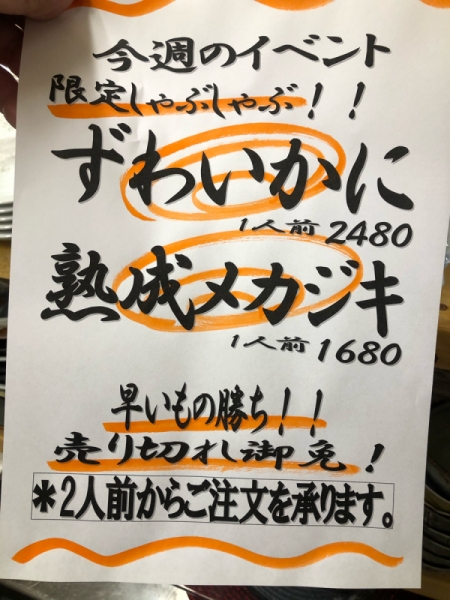 今週のイベント
限定しゃぶしゃぶ！！
ずわいかに
1人前2480
熟成メカジキ
1人前1680
早いもの勝ち！！
売り切れ御免！
＊2人前からご注文を承ります。